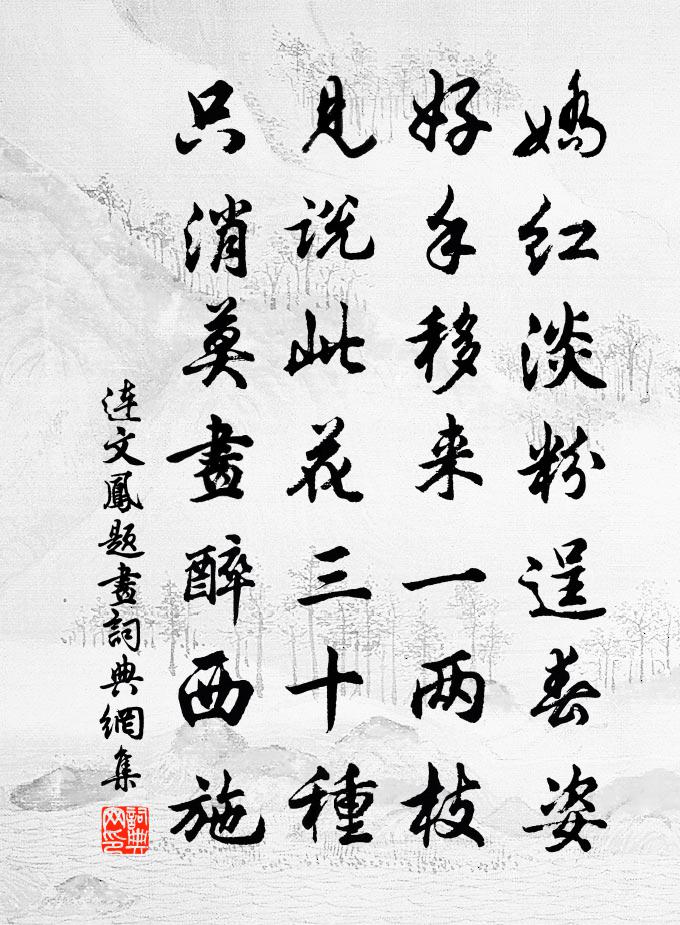 嬌红淡粉逞春姿
好手移来一两枝
見说此花三十種
只消莫畫醉西施
连文鳳题畫詞典網集
詞典
网印